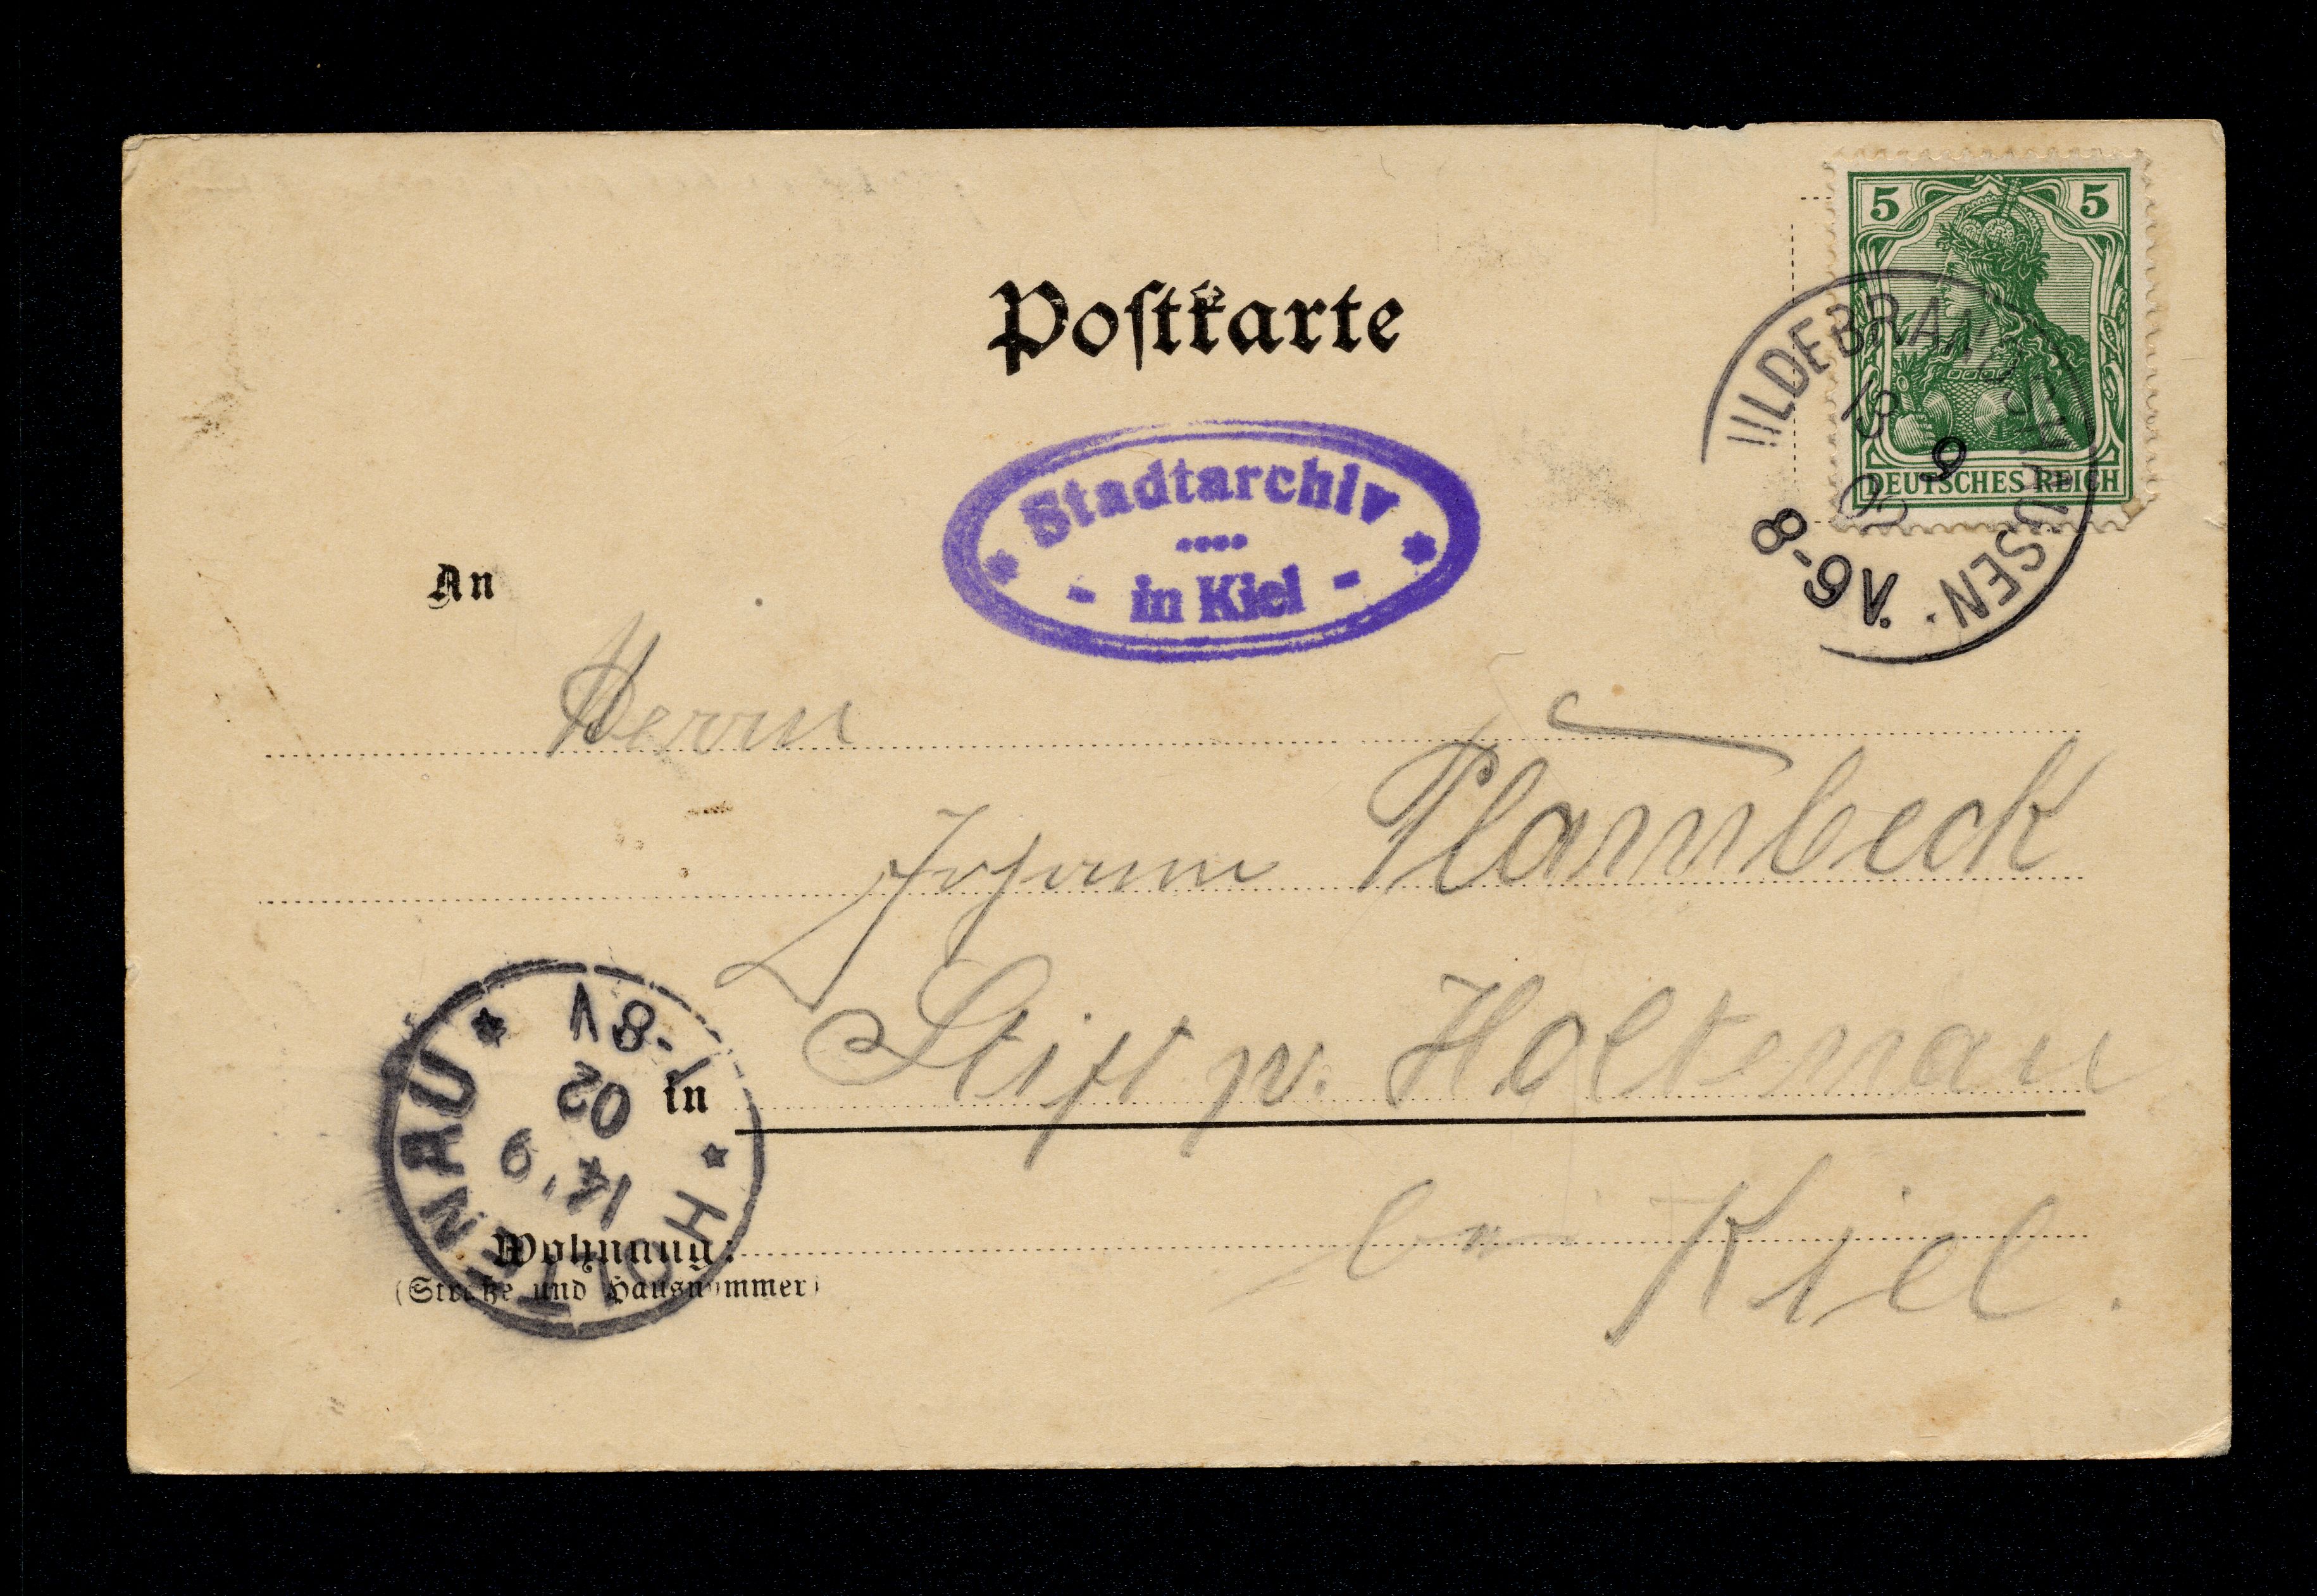 Postkarte
5 5
DEUTSCHES REICH
HILDEBRANDSHAUSEN.
13 9
6-8 N.
Stadtarchiv
in Kiel
An
Herrn
Johann Plambeck
Stift p. Holtenau
in
bei Kiel.
HOLTENAU
14.9
02
7-8V
Wohnung:
(Straße und Hausnummer)